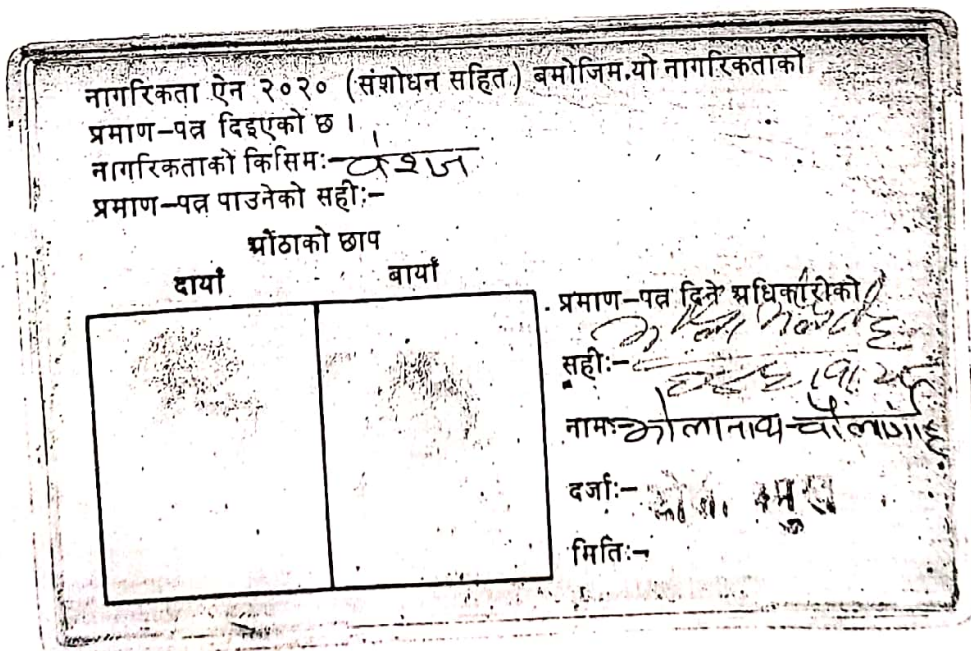 नागरिकता ऐन २०२० (संशोधन सहित) बमोजिम यो नागरिकताको
प्रमाण–पत्र दिइएको छ ।
नागरिकताको किसिमः– वंशज
प्रमाण–पत्र पाउनेको सहीः–
औंठाको छाप
दायाँ बायाँ
प्रमाण–पत्र दिने अधिकारीको
सहीः–
नामः– भोलानाथ चौलागाईं
दर्जाः–
मितिः–